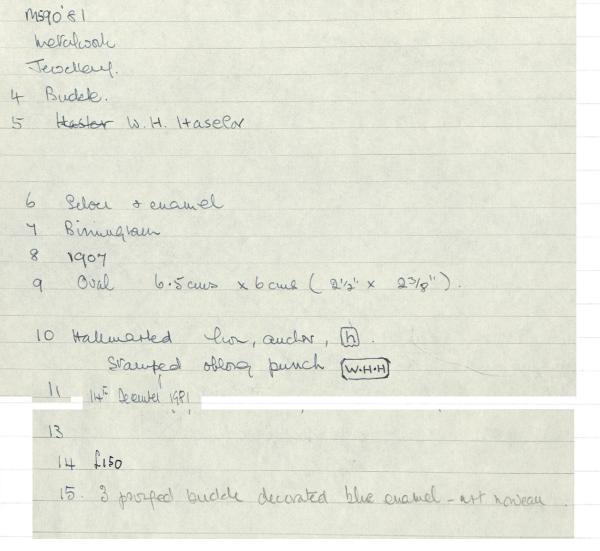 M590'81
Metalwork
Jewellery.
4 Buckle.
5 Haslor W.H. Haselor
6 Silver & enamel
7 Birmingham
8 1907
9 Oval 6.5cms x 6cms ( 2½" x 2⅜" ) .
10 Hallmarked lion, anchor, h .
Stamped oblong punch W.H.H
11 14th December 1981
13
14 £150
15. 3 pronged buckle decorated blue enamel - art nouveau .